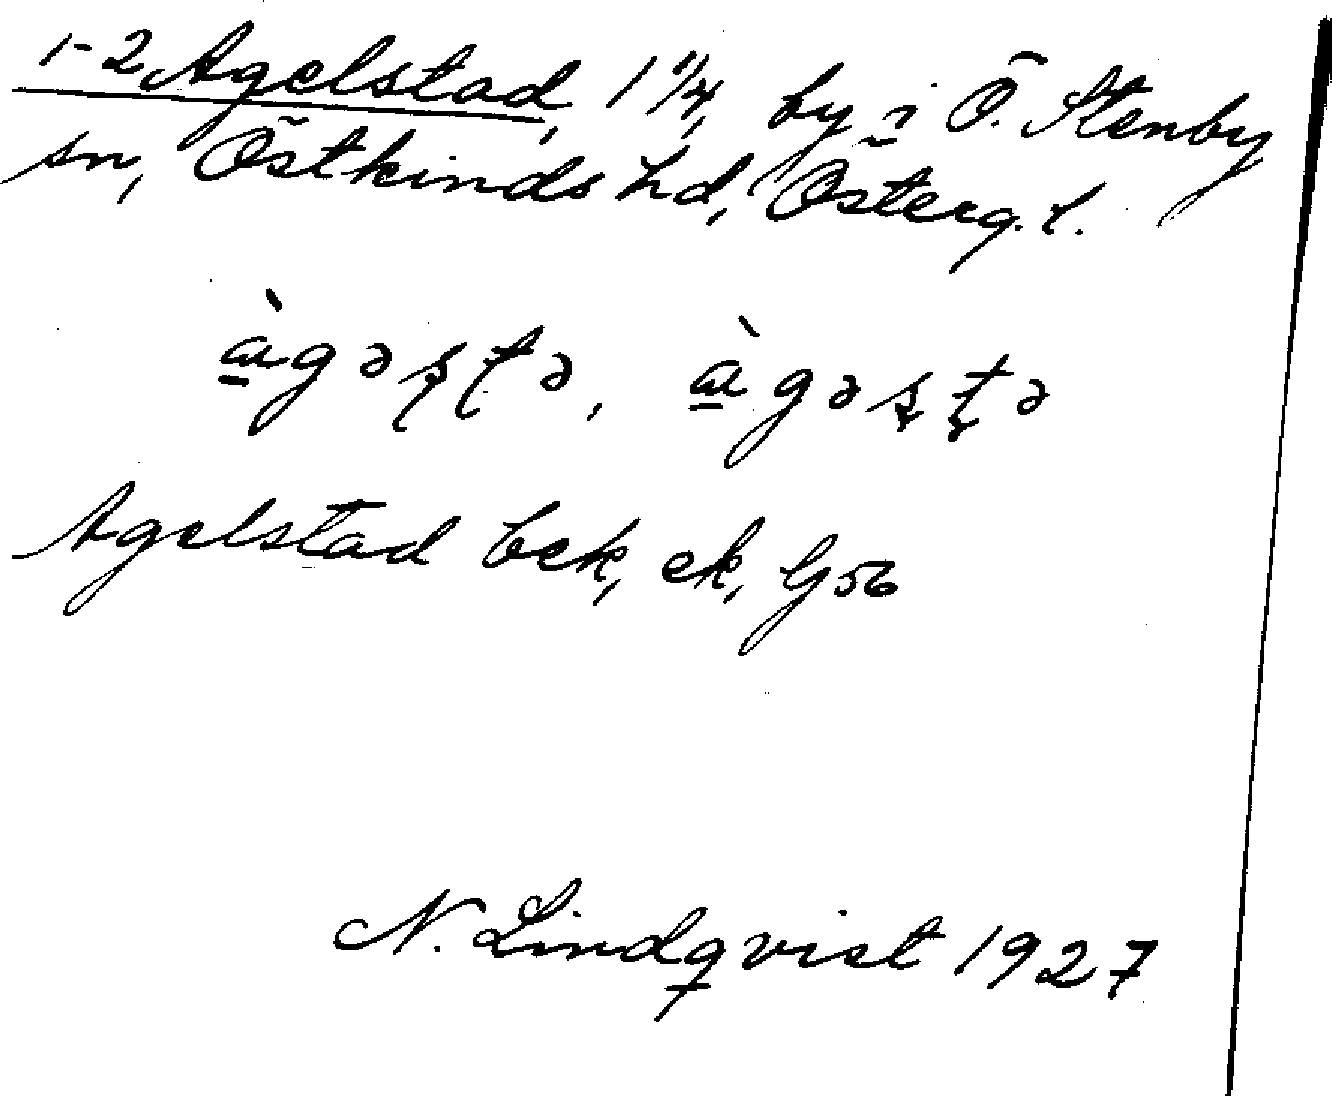 1-2 Agelstad, 1 1/4, by i Ö. Stenby
sn, Östkinds hd, Österg. l.
à̱gəʂʈə, à̱gəʂʈə
Agelstad bek, ek, G56
N. Lindqvist 1927